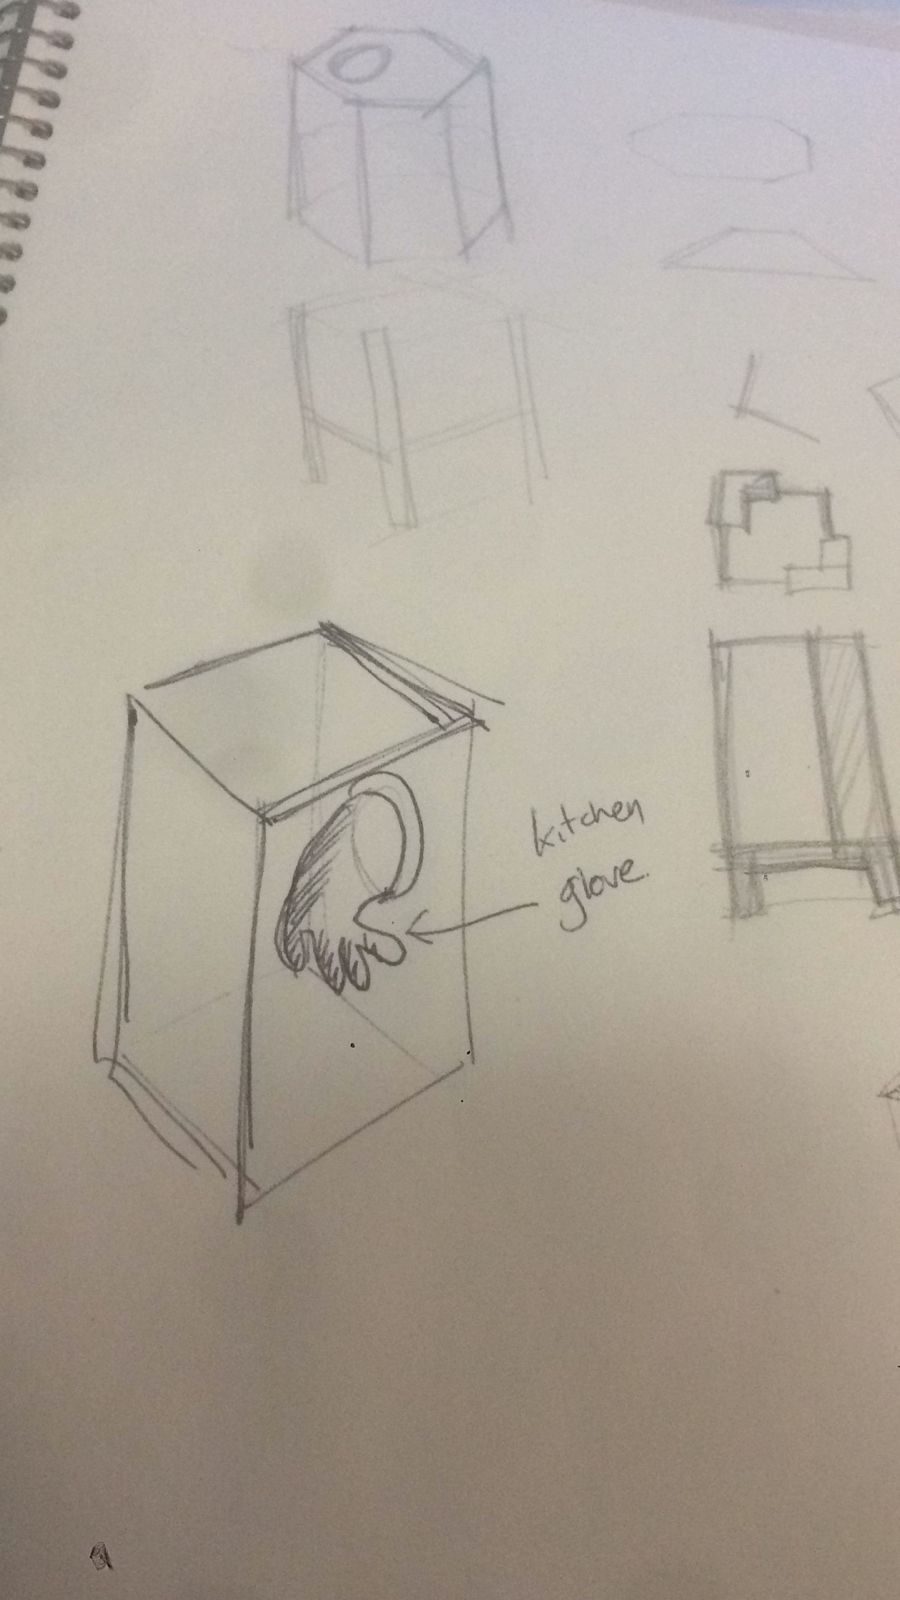 kitchen
glove.